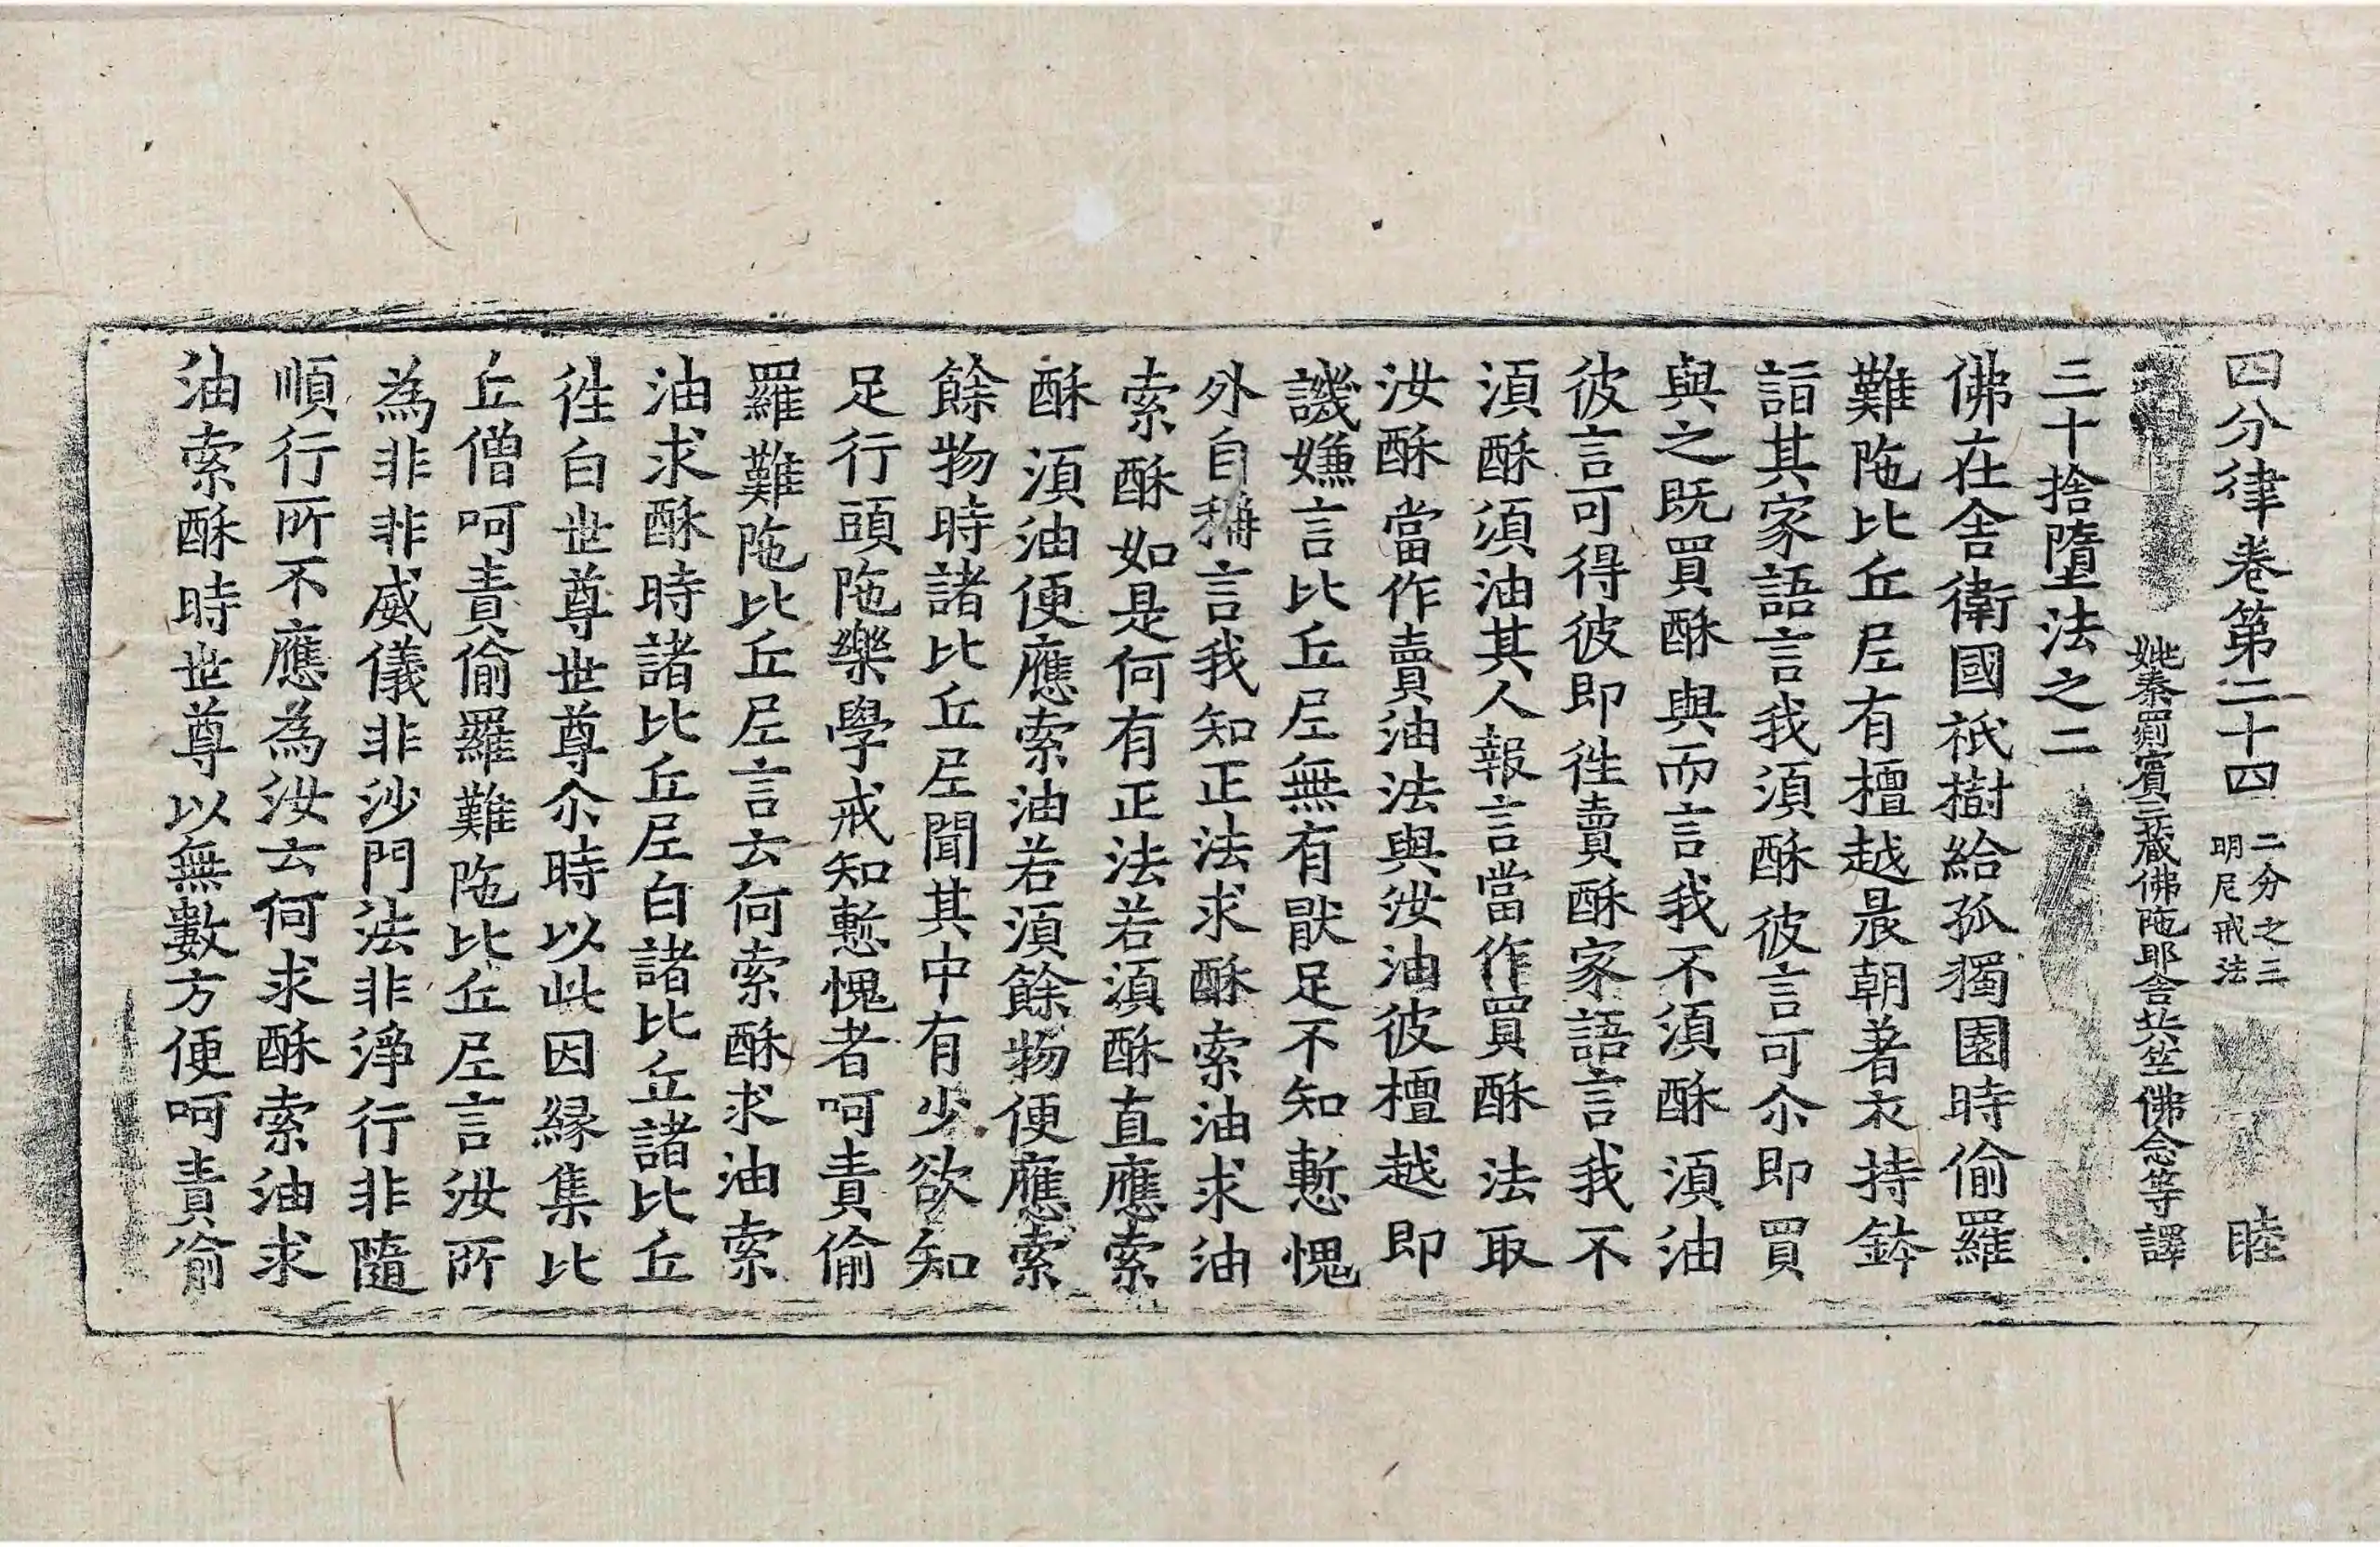 四分律卷第二十四 二分之三 明尼戒法 睦
姚秦罽賓三藏佛陁耶舍共竺佛念等譯
三十捨墮法之二
佛在舍衛國祇樹給孤獨園時偷羅
難陁比丘尼有檀越晨朝著衣持鉢
詣其家語言我須酥彼言可尒即買
與之既買酥與而言我不須酥須油
彼言可得彼即徃賣酥家語言我不
須酥須油其人報言當作買酥法取
汝酥當作賣油法與汝油彼檀越即
譏嫌言比丘尼無有猒足不知慙愧
外自稱言我知正法求酥索油求油
索酥如是何有正法若須酥直應索
酥須油便應索油若須餘物便應索
餘物時諸比丘尼聞其中有少欲知
足行頭陁樂學戒知慙愧者呵責偷
羅難陁比丘尼言云何索酥求油索
油求酥時諸比丘尼白諸比丘諸比丘
徃白世尊世尊尒時以此因緣集比
丘僧呵責偷羅難陁比丘尼言汝所
為非非威儀非沙門法非淨行非隨
順行所不應為汝云何求酥索油求
油索酥時世尊以無數方便呵責偷